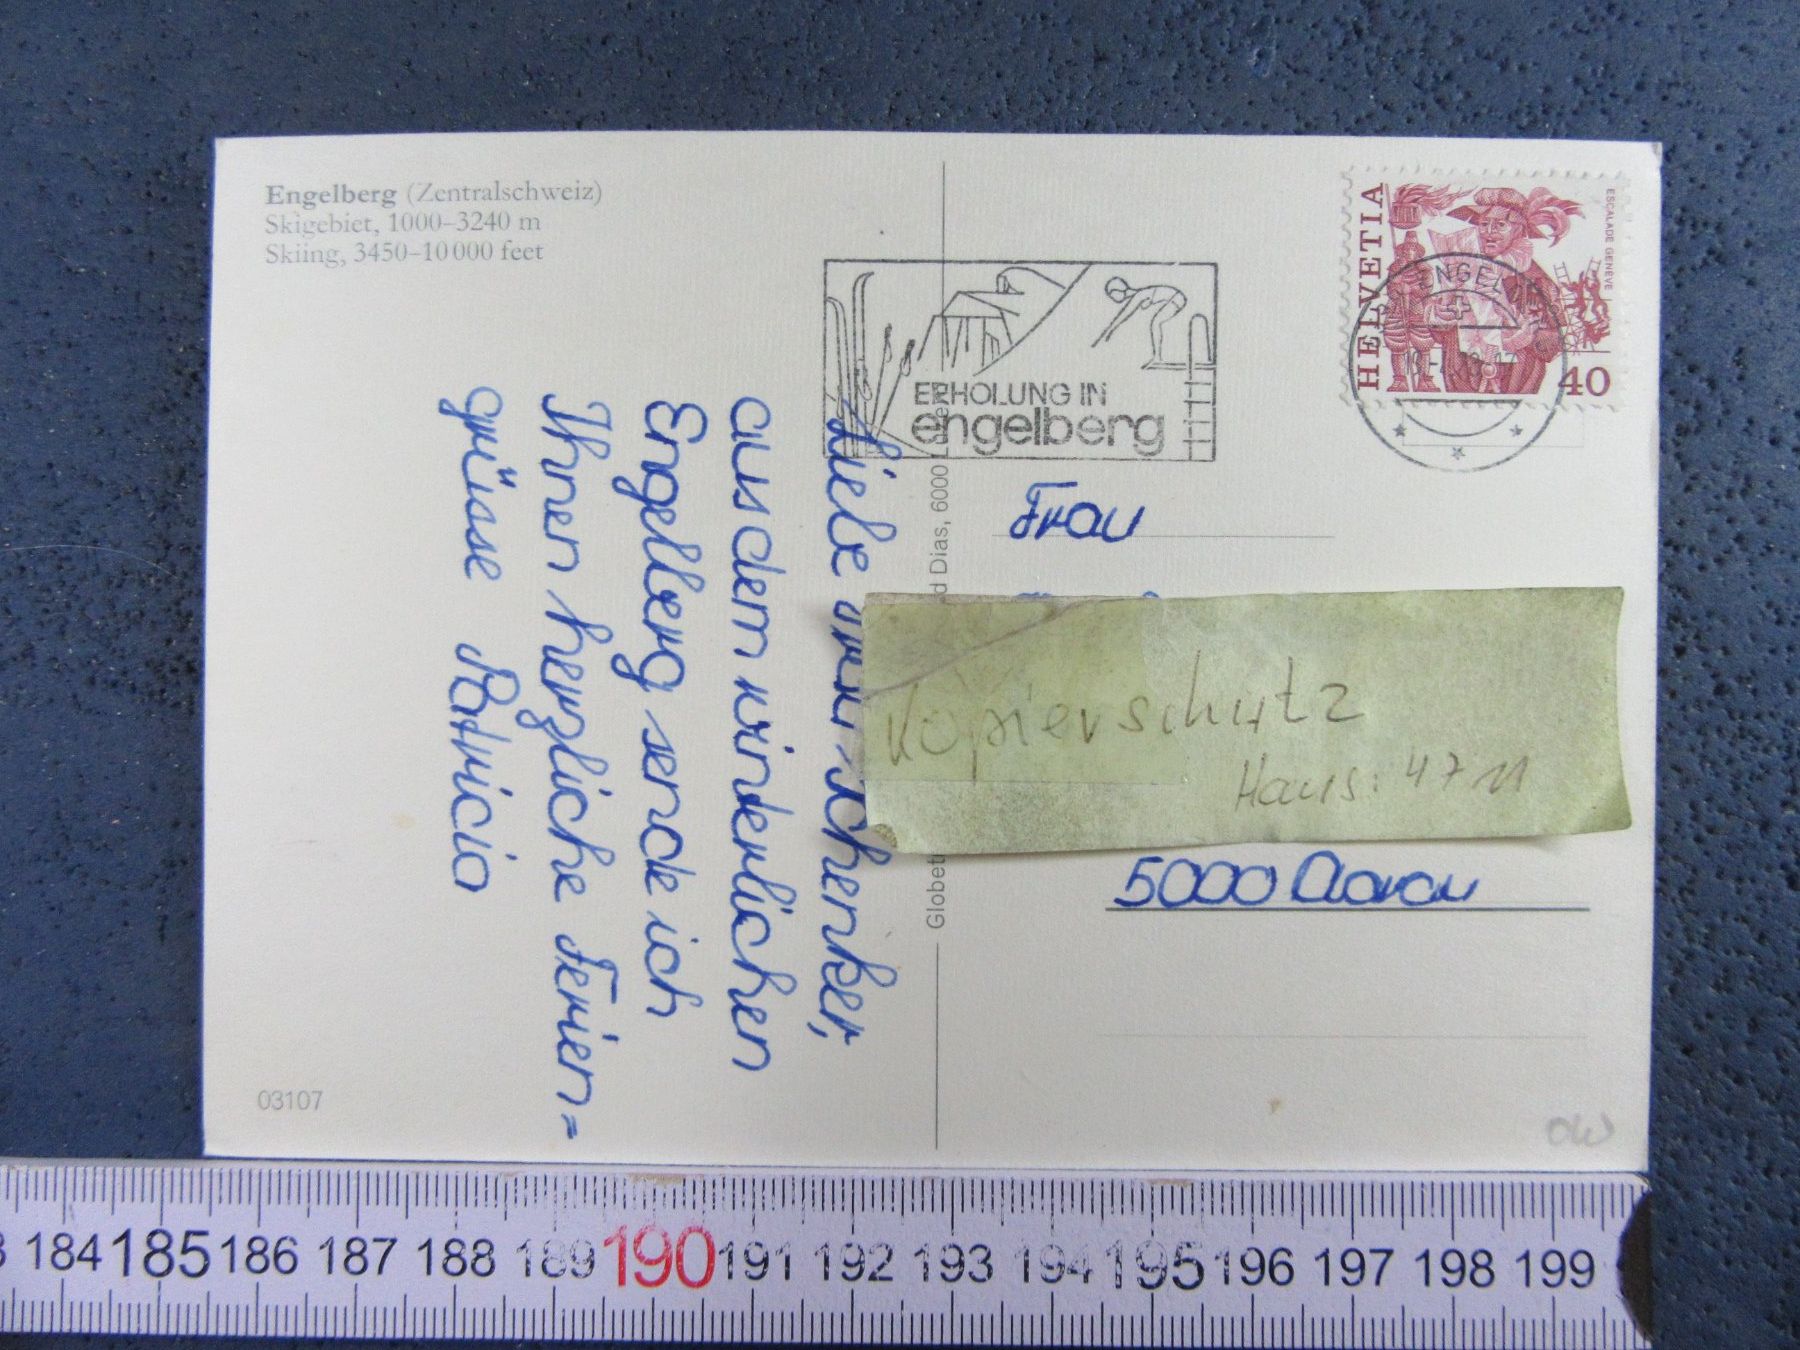 Engelberg (Zentralschweiz)
Skigebiet, 1000–3240 m
Skiing, 3450–10 000 feet
ERHOLUNG IN
engelberg
HELVETIA
ESCALADE GENÈVE
40
ENGELBERG
Liebe Schenker,
aus dem winderlichen
Engelberg sende ich
Ihnen herzliche Ferien=
grüsse Patricia
Globet
d Dias, 6000
Frau
Kopierschutz
Haus: 4711
5000 Aarau
03107
OW
184 185 186 187 188 189 190 191 192 193 194 195 196 197 198 199